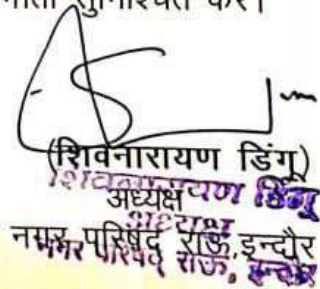 सुनिश्चित करें।
(शिवनारायण डिंगू)
शिवनारायण डिंगू
अध्यक्ष
अध्यक्ष
नगर परिषद् राऊ,इन्दौर
नगर परिषद् राऊ, इन्दौर